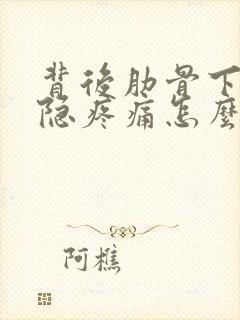 背後肋骨下
隐疼痛怎麼
阿樵